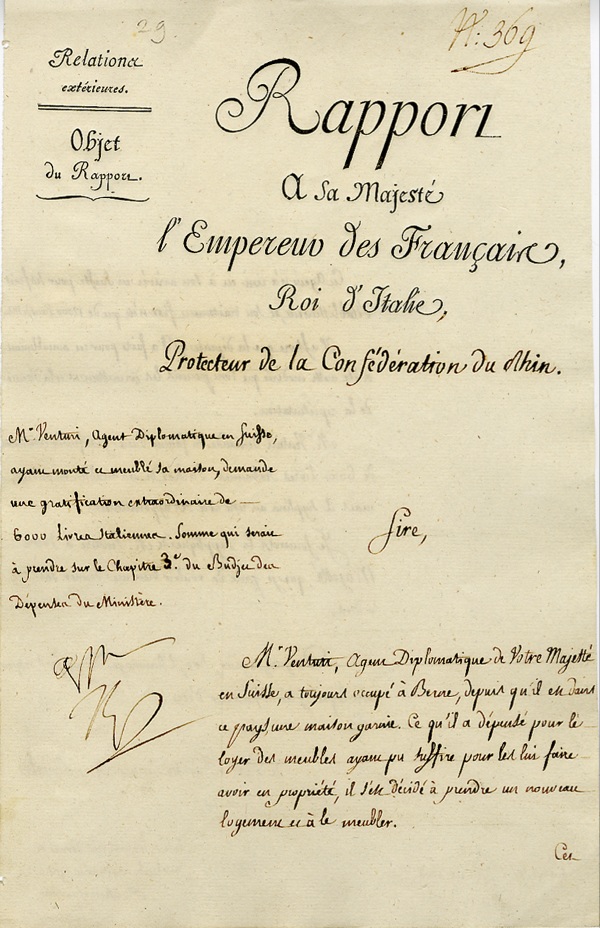 29
N.° 369
Relations
extérieures.
Objet
du Rapport.
Rapport
A Sa Majesté
l'Empereur des Français,
Roi d'Italie,
Protecteur de la Confédération du Rhin.
Mr. Venturi, Agent Diplomatique en Suisse,
ayant monté et meublé sa maison, demande
une gratification extraordinaire de
6000 Livres Italiennes. Somme qui serait
à prendre sur le Chapitre 3.e du Budjet des
Dépenses du Ministère.
Sire,
Mr. Venturi, Agent Diplomatique de Votre Majesté
en Suisse, a toujours occupé à Berne, depuis qu'il est dans
ce pays, une maison garnie. Ce qu'il a dépensé pour le
loyer des meubles ayant pu suffire pour les lui faire
avoir en propriété, il s'est décidé à prendre un nouveau
logement et à le meubler.
Cet